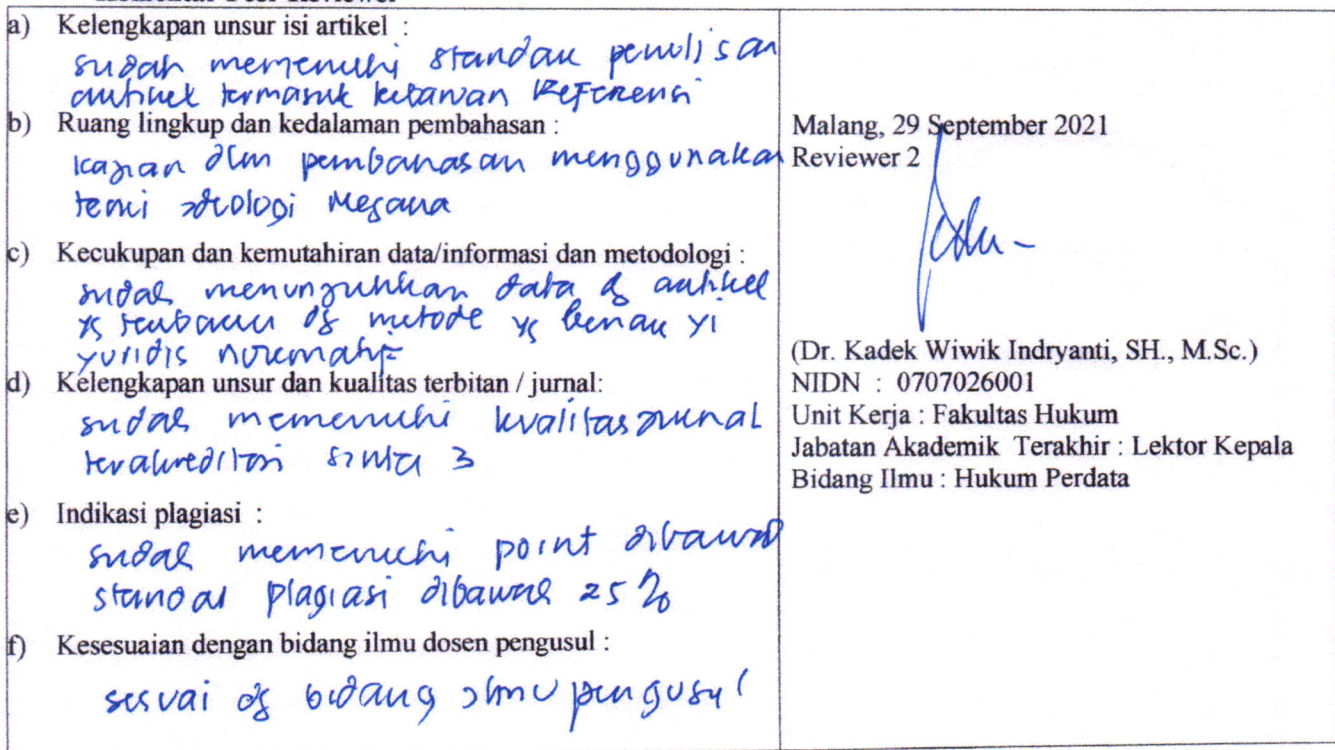 a) Kelengkapan unsur isi artikel :
sudah memenuhi standar penulisan
artikel termasuk Referensi
b) Ruang lingkup dan kedalaman pembahasan :
kajian dlm pembahasan menggunakan
teori ideologi Negara
c) Kecukupan dan kemutahiran data/informasi dan metodologi :
sudah menunjukkan data & artikel
yg terbaru dg metode yg benar yi
yuridis normatif
d) Kelengkapan unsur dan kualitas terbitan / jurnal:
sudah memenuhi kualitas jurnal
terakreditasi sinta 3
e) Indikasi plagiasi :
sudah memenuhi point dibawah
standar plagiasi dibawah 25 %
f) Kesesuaian dengan bidang ilmu dosen pengusul :
sesuai dg bidang ilmu pengusul
Malang, 29 September 2021
Reviewer 2
(Dr. Kadek Wiwik Indryanti, SH., M.Sc.)
NIDN : 0707026001
Unit Kerja : Fakultas Hukum
Jabatan Akademik Terakhir : Lektor Kepala
Bidang Ilmu : Hukum Perdata